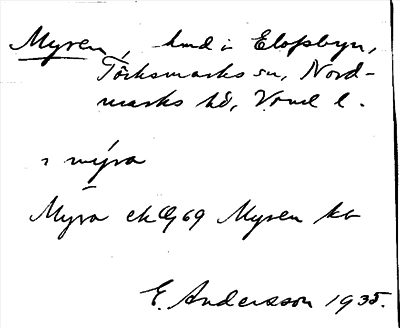 Myren, hmd i Elofsbyn,
Törksmarks sn, Nord-
marks hd, Vrml l.
i myra
Myra ek 69 Myren ka
E. Andersson 1935.